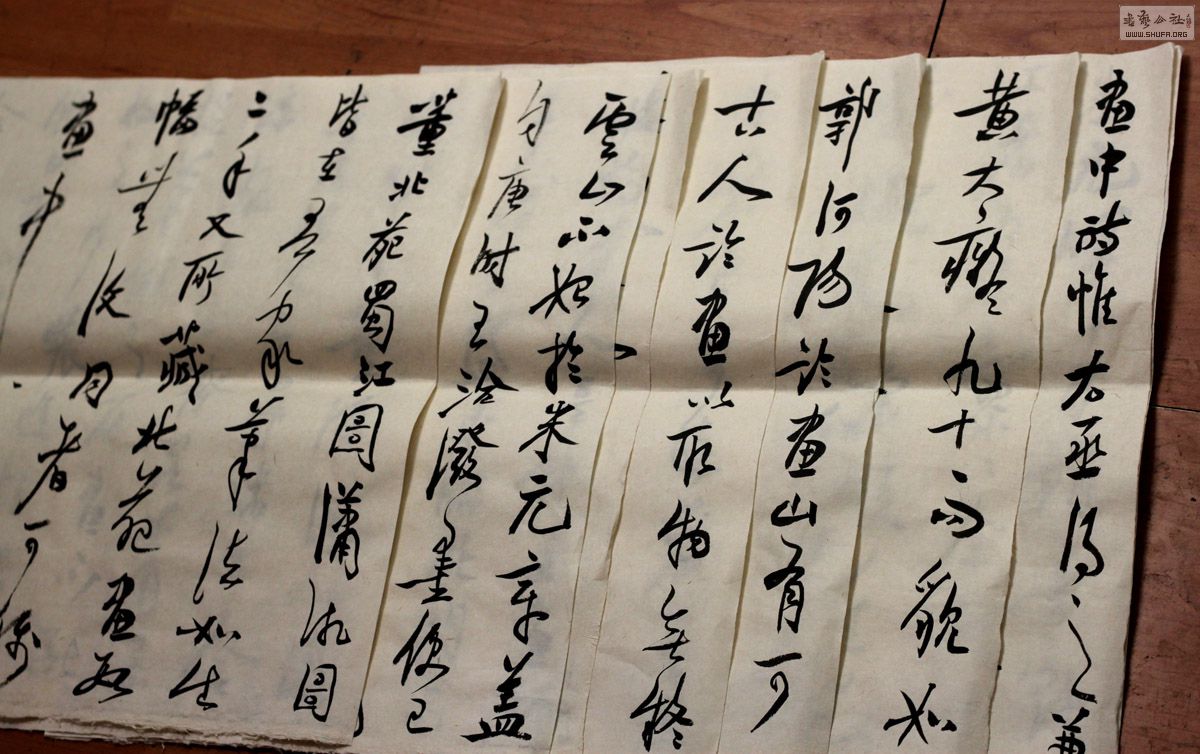 画中诗惟右丞得之兼
黄大癡九十而貌如
郭河阳论画山有可
古人论画以取物无疑
云山不始于米元章盖
自唐时王洽泼墨便已
董北苑蜀江圖潇湘圖
皆在吾家筆法如出
二手又所藏北苑画数
幅無復同者可稱
画中
书艺公社
WWW.SHUFA.ORG